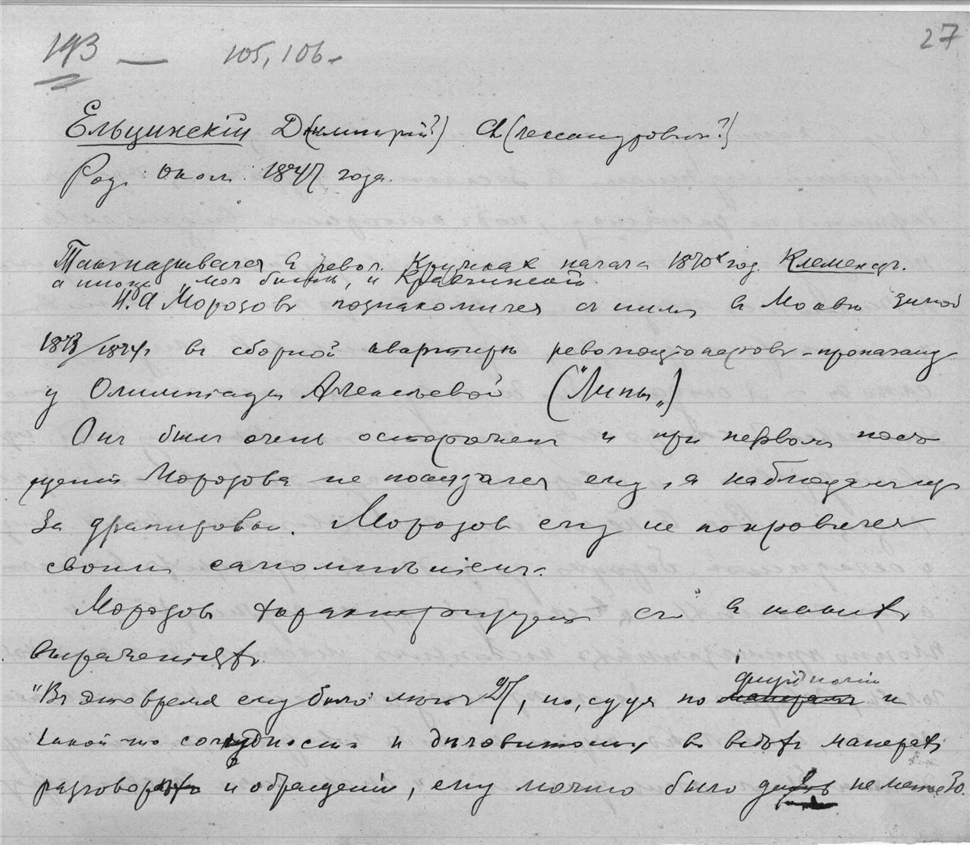 27
193 — 105, 106 –
Ельцинскій Д(митрій?) А(лександрович?)
Род. окол. 1847 года.
Так назывался в револ. кружках начала 1870х год. Клеменц.
а иногда, мож. быть, и Кравчинский
Н. А. Морозовъ познакомился съ нимъ в Москвѣ зимой
1873/1874г въ сборной квартирѣ революціонеровъ-пропаганд.
у Олимпіады Алексѣевой ("Липы")
Онъ былъ очень остороженъ и при первомъ посѣ-
щеніи Морозова не показался ему, а наблюдалъ
за драпировкой. Морозовъ ему не понравился
своимъ самомнѣніемъ.
Морозовъ характеризуетъ его в такихъ
выраженіяхъ.
"Въ это время ему было лѣтъ 27, но, судя по манерамъ и
какой-то солидности и дѣловитости въ всѣхъ манерахъ
разговора и обращенія, ему можно было дать не менѣе 30.